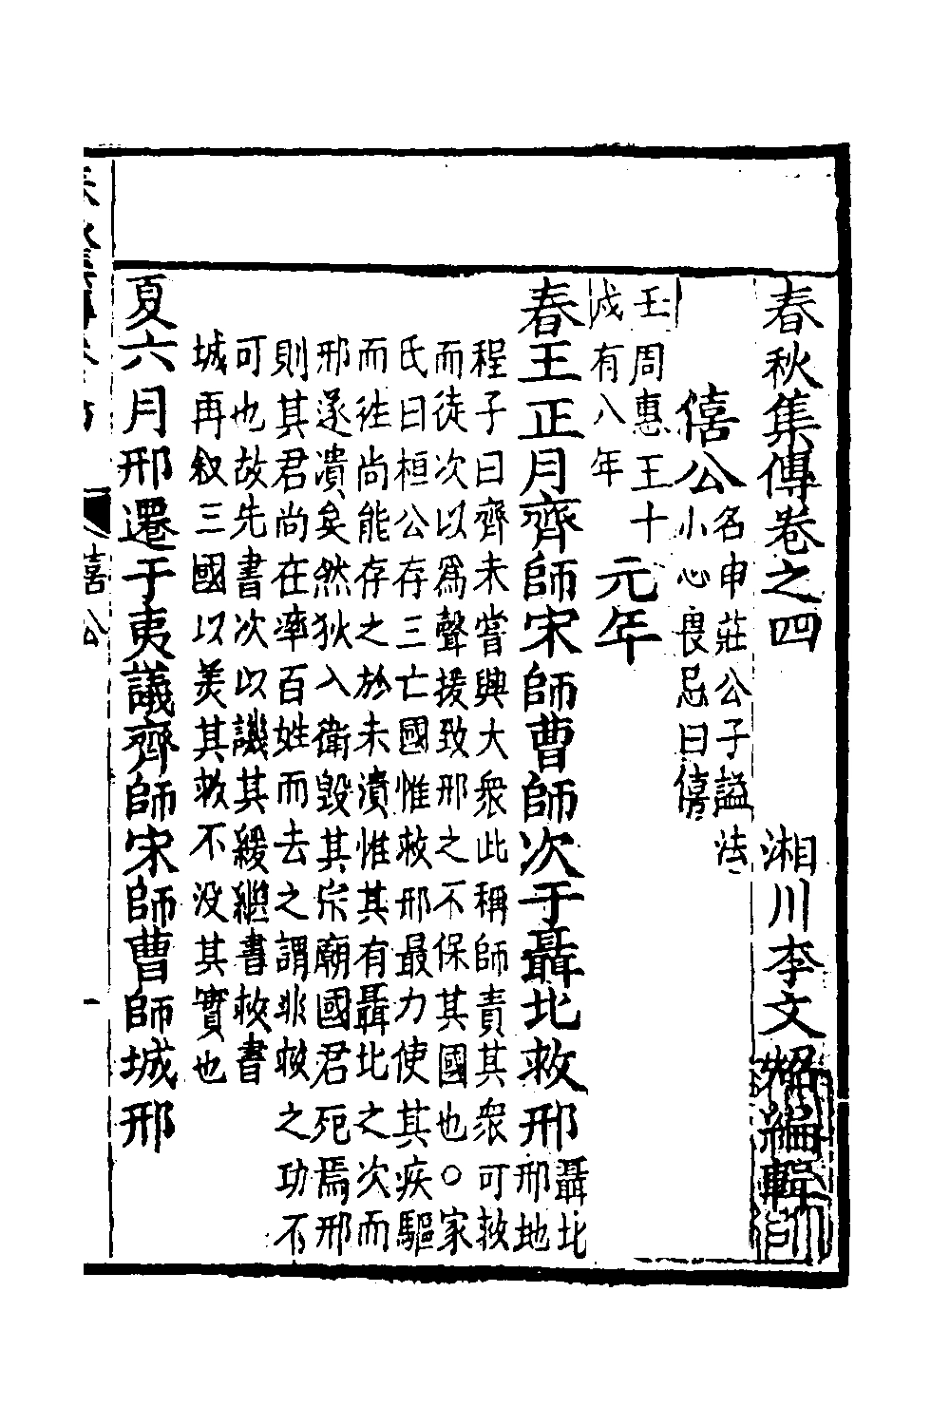 春秋集傳卷之四　湘川李文炤編輯
僖公名申莊公子謚法
小心畏忌曰僖
壬周惠王十
戌有八年
元年
春王正月齊師宋師曹師次于聶北救邢聶北
邢地
程子曰齊未嘗興大衆此稱師責其衆可救
而徒次以為聲援致邢之不保其國也○家
氏曰桓公存三亡國惟救邢最力使其疾驅
而徃尚能存之於未潰惟其有聶北之次而
邢遂潰矣然狄入衛毀其宗廟國君死焉邢
則其君尚在率百姓而去之謂非救之功不
可也故先書次以譏其緩繼書救書
城再叙三國以美其救不没其實也
夏六月邢遷于夷議齊師宋師曹師城邢
僖公
一